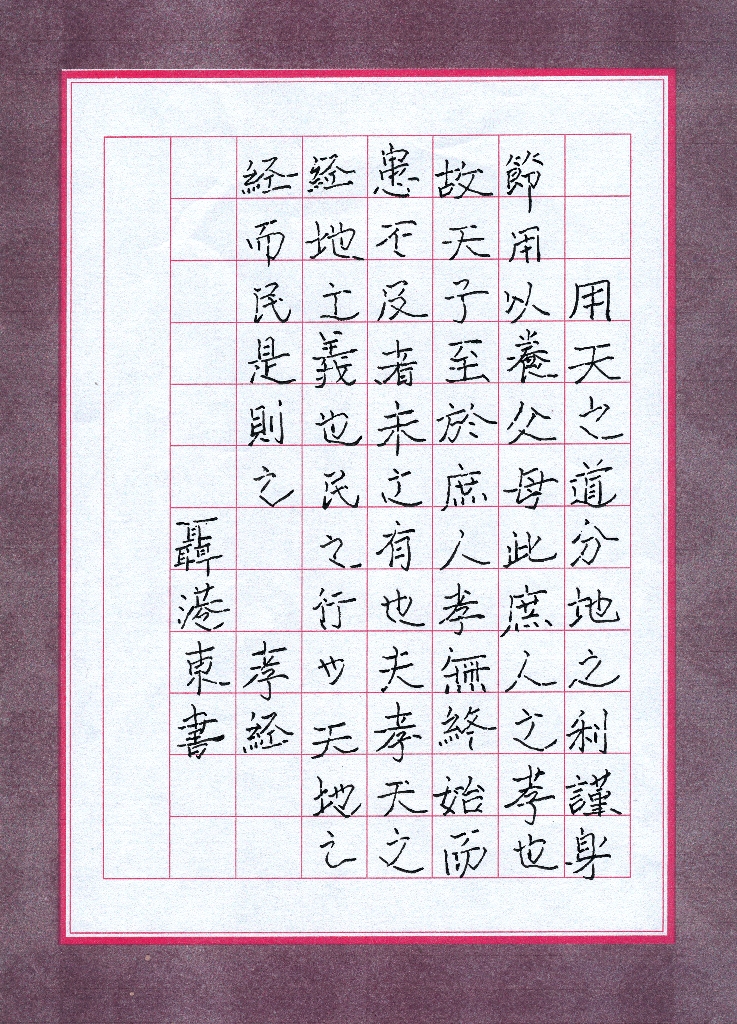 用天之道分地之利謹身
節用以養父母此庶人之孝也
故天子至於庶人孝無終始而
患不及者未之有也夫孝天之
経地之義也民之行也天地之
経而民是則之 孝経
聶港東書